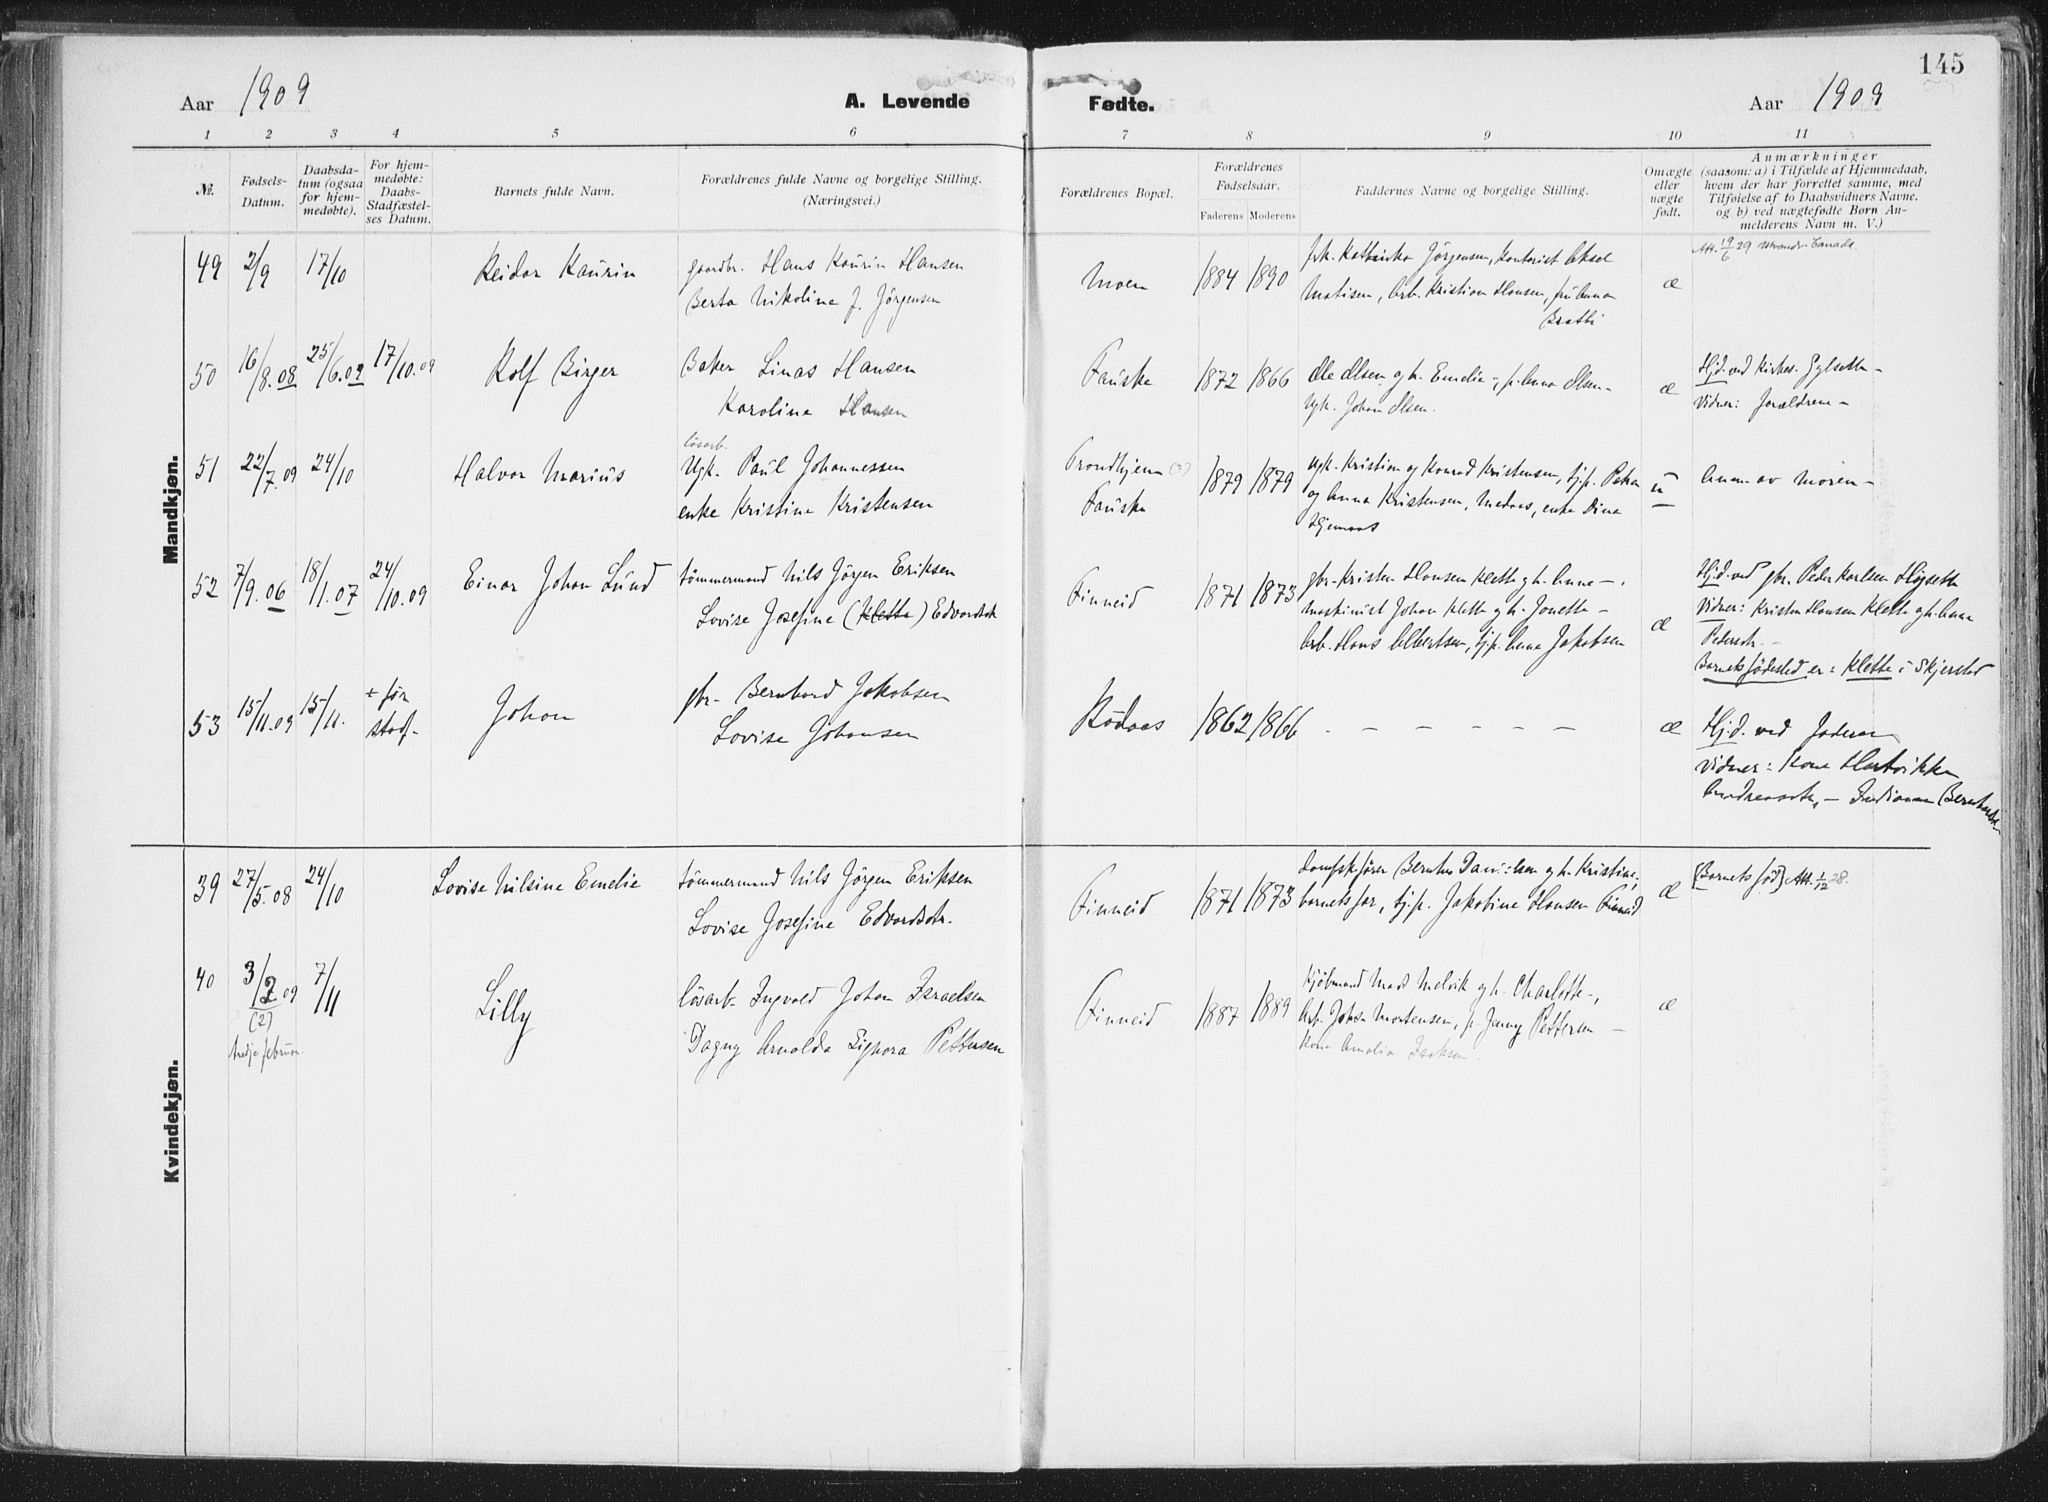 145
Aar 1909
A. Levende Fødte.
Aar 1909
1 2 3 4 5 6 7 8 9 10 11
№.
Fødsels-Datum.
Daabsda-tum (ogsaa for hjem-medøbte).
For hjem-medøbte: Daabs-Stadfæstel-ses Datum.
Barnets fulde Navn.
Forældrenes fulde Navne og borgelige Stilling.
(Næringsvei.)
Forældrenes Bopæl.
Forældrenes Fødselsaar.
Faderens Moderens
Faddernes Navne og borgelige Stilling.
Om ægte eller uægte født.
Anmærkninger
(saasom: a) i Tilfælde af Hjemmedaab,
hvem der har forrettet samme, med
Tilføielse af to Daabsvidners Navne.
og b) ved uægtefødte Børn An-
melderens Navn m. V.)
Mandkjøn.
49 2/9 17/10 Reidar Kaurin
gaardbr. Hans Kaurin Hansen
Berta Nikoline f. Jörgensen
Moen 1884 1890
frk. Kathinka Jörgensen, Kontorist Aksel
Matisen, arb. Kristian Hansen, fru Anna
Bratli
æ
Att. 19/6 29 Utvandr. Canada.
50 16/8.08 25/6.09 17/10.09 Rolf Birger
Baker Linas Hansen
Karoline Hansen
Fauske 1872 1866
Ole Olsen og h. Emelie -, p. Anna Olsen -
Ugk. Johan Olsen.
æ
Hjd. ved Kirkes. Gylseth -
Vidner: forældrene -
51 22/7.09 24/10 Halvor Marius
lösarb.
Ugk. Paul Johannessen
enke Kristine Kristensen
Trondhjem (?)
Fauske
1879 1879
ugk. Kristian og Konrad Kristensen, tj.p. Petra
og Anna Kristensen, Medaas, enke Dina
u
Anm. av moren -
52 7/9.06 18/1.07 24/10.09 Einar Johan Lund
tömmermand Nils Jörgen Eriksen
Lovise Josefine (Klette) Edvardsdtr
Finneid 1871 1873
gbr. Kristen Hansen Klette og h. Anna -,
maskinist Johan Klette og h. Jonetta -
Arb. Hans Albertsen, tj.p. Anna Jakobsen
æ
Hjd. ved gbr. Peder Karlsen Högseth
Vidner: Kristen Hansen Klette og h. Anna
Pedersdtr. -
Barnets födested er: Klette i Skjerstad
53 15/11.09 15/11. + før stadf. Johan
gbr. Bernhard Jakobsen
Lovise Johansen
Rödaas 1862 1866
- - - - - -
æ
Hjd. ved faderen
Vidner: Kone Hartvikka
Andreasdtr. - Indianna Bernhardsd.
Kvindekjøn.
39 27/5.08 24/10 Lovise Nilsine Emelie
tömmermand Nils Jörgen Eriksen
Lovise Josefine Edvardsdtr.
Finneid 1871 1873
dampskfører Bernhu Danielsen og h. Kristine,
barnets far, tj.p. Jakobine Hansen Finneid
æ
[Barnets fød] Att. 1/12 28.
40 3/2 09 7/11 Lilly
(2)
tredje februar
lösarb. Ingvald Johan Israelsen
Dagny Arnolda Signora Pettersen
Finneid 1887 1889
Kjöbmand Mads Melvik og h. Charlotte -,
Arb. Johan Mortensen, p. Jenny Pettersen -
Kone Amalia Isaksen.
æ